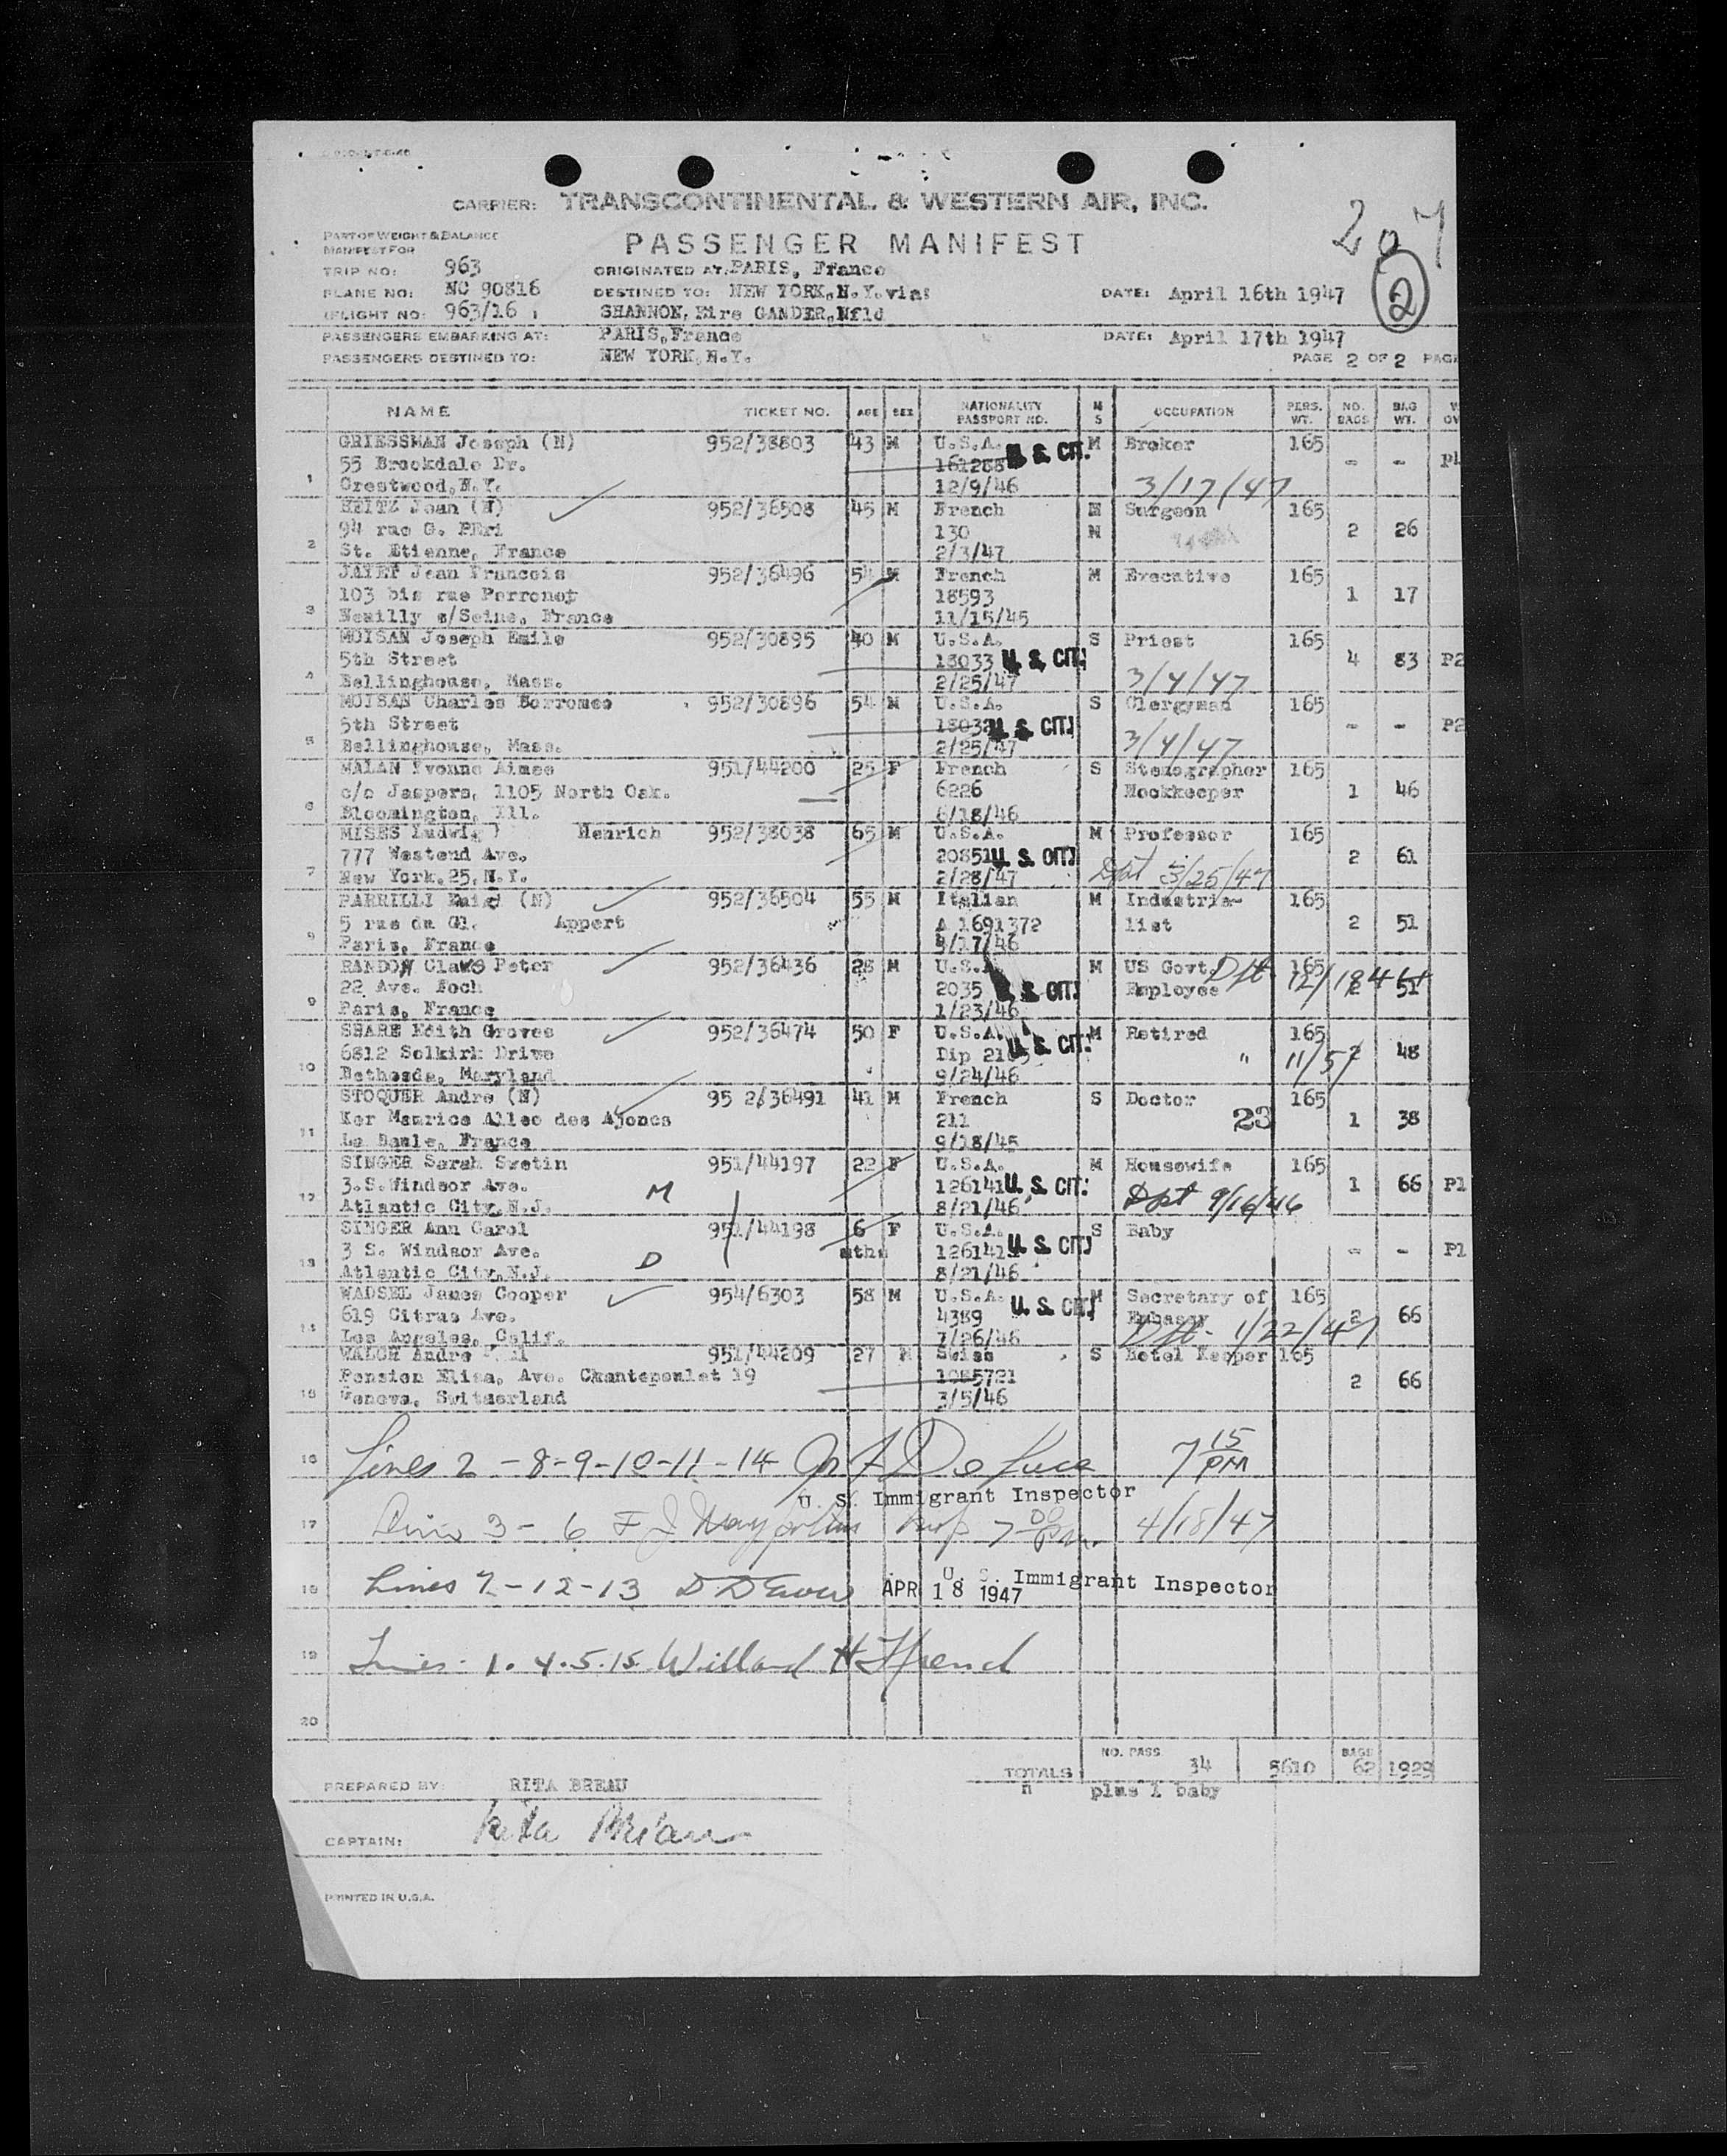 CARRIER: TRANSCONTINENTAL & WESTERN AIR, INC.
207
PART OF WEIGHT & BALANCE
MANIFEST FOR
PASSENGER MANIFEST
2
TRIP NO: 963
ORIGINATED AT: PARIS, France
PLANE NO: NC 90816
DESTINED TO: NEW YORK, N.Y. via:
DATE: April 16th 1947
FLIGHT NO: 963/16
SHANNON, Eire GANDER, Nfld
PASSENGERS EMBARKING AT: PARIS, France
DATE: April 17th 1947
PASSENGERS DESTINED TO: NEW YORK, N.Y.
PAGE 2 OF 2
NAME TICKET NO. AGE SEX NATIONALITY PASSPORT NO. M S OCCUPATION PERS. WT. NO. BAGS BAG WT.
GRIESSMAN Joseph (N) 952/38803 43 M U.S.A. M Broker 165
55 Brookdale Dr. 161288 U. S. CIT. - -
1 Crestwood, N.Y. 12/9/46 3/17/47
HEITZ Jean (N) 952/36508 45 M French Surgeon 165
94 rue G. PEri 130 M 2 26
2 St. Etienne, France 2/3/47
Jean Francois 952/36496 54 M French M Executive 165
103 bis rue Perronet 18593 1 17
3 Neuilly s/Seine, France 11/15/45
MOISAN Joseph Emile 952/30895 40 M U.S.A. S Priest 165
5th Street 18033 U. S. CIT. 4 83 P2
4 Bellinghouse, Mass. 2/25/47 3/4/47
MOISAN Charles Borromeo 952/30896 54 M U.S.A. S Clergyman 165
5th Street U. S. CIT. - - P2
5 Bellinghouse, Mass. 2/25/47 3/4/47
MALAN Yvonne Aimee 951/44200 25 F French S Stenographer 165
c/o Jaspers, 1105 North Oak. 6226 Bookkeeper 1 46
6 Bloomington, Ill. 6/18/46
MISES Ludwig Henrich 952/38038 65 M U.S.A. M Professor 165
777 Westend Ave. 20851 U. S. CIT. 2 61
7 New York, 25, N.Y. 2/28/47 Dpt 3/25/47
PARRILLI (N) 952/36504 55 M Italian M Industria-
165
5 rue du Gl. Appert A 1691372 list 2 51
Paris, France /17/46
RANDON Claus Peter 952/36436 28 M U.S.A. M US Govt. 165
22 Ave. Foch 2035 U. S. CIT. Employee 2 51
9 Paris, France 1/23/46
SHARE Edith Groves 952/36474 50 F U.S.A. M Retired 165
6812 Selkirk Drive Dip U. S. CIT. " 11/5 2 48
10 Bethesda, Maryland 9/24/46
STOQUER Andre (N) 95 2/36491 41 M French S Doctor 165
Ker Maurice Allee des Ajoncs 211 23 1 38
11 La Baule, France 9/18/45
SINGER Sarah Swetin 951/44197 22 F U.S.A. M Housewife 165
3.S.Windsor Ave. 126141 U. S. CIT. 1 66 P1
12 Atlantic City, N.J. M 8/21/46 Dpt 9/16/46
SINGER Ann Carol 951/44198 6 F U.S.A. S Baby
3 S. Windsor Ave. mths 126141 U. S. CIT. - - P1
13 Atlantic City, N.J. D 8/21/46
WADSEL James Cooper 954/6303 58 M U.S.A. M Secretary of 165
619 Citrus Ave. 4389 U. S. CIT. Embassy 2 66
14 Los Angeles, Calif. 7/26/46 1/22/47
WALCH Andre 951/44209 27 M Swiss S Hotel Keeper 165
Pension Elisa, Ave. Chantepoulet 19 2 66
15 Geneva, Switzerland 3/5/46
16 Lines 2 - 8-9-10-11-14 De Luca 7 15 PM
U. S. Immigrant Inspector
17 3 - 6 7 00 PM 4/18/47
18 Lines 7-12-13 APR 18 1947 U. S. Immigrant Inspector
19 Lines 1. 4. 5. 15 Willard H
20
TOTALS NO. PASS 34 5610 BAGS 62 1929
" plus 1 baby
PREPARED BY: RITA BREAU
CAPTAIN: Rita Breau
PRINTED IN U.S.A.